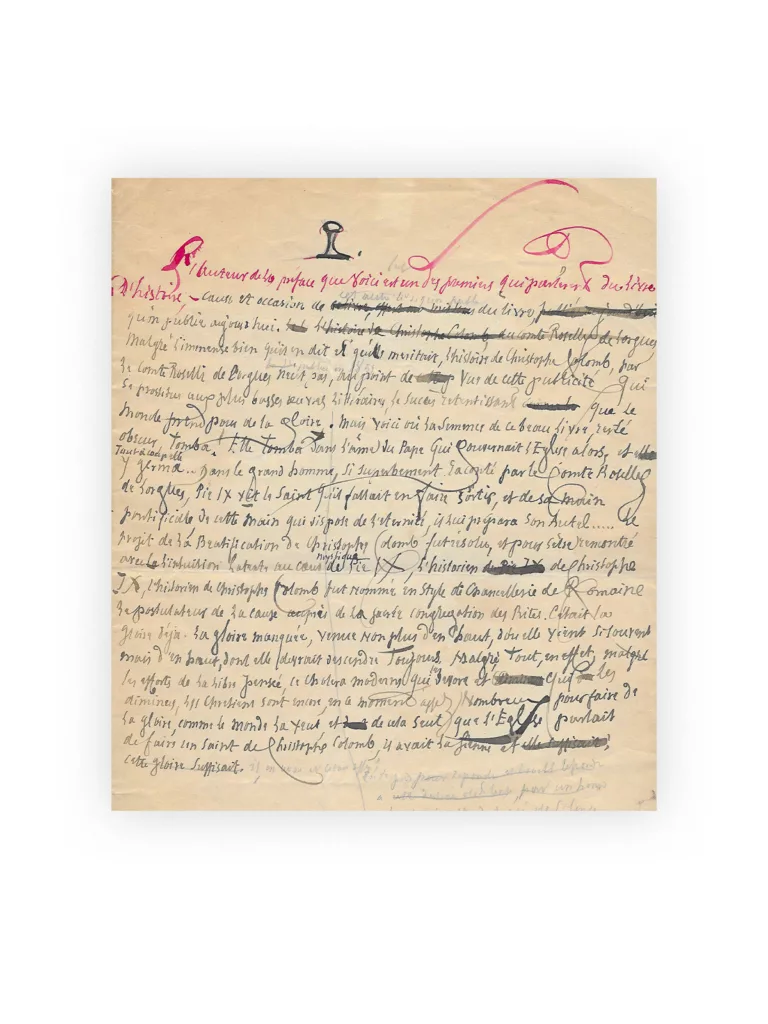 I.
L'Auteur de la préface que Voici est un des premiers qui parlèrent du livre
D'histoire, – cause et occasion de du livre,
qu'on publie aujourd'hui. l'histoire de Christophe Colomb, du Comte Roselly de Lorgues
Malgré l'immense bien qu'on en dit et qu'elle méritait, l'histoire de Christophe Colomb, par
le Comte Roselly de Lorgues n'eut pas, au point de Vue de cette publicité qui
se prostitue aux plus basses œuvres littéraires, le succès retentissant que le
Monde prend pour de la gloire. Mais Voici où la semence de ce beau livre, resté
obscur, Tomba! Elle Tomba Dans l'âme du Pape Qui Gouvernait l'Eglise alors, et elle
Tout-à-coup elle
y germa... Dans le grand homme, si superbement raconté par le Comte Roselly
de Lorgues, Pie IX vit le Saint qu'il fallait en faire sortir, et de sa main
pontificale de cette main qui dispose de l'éternité, il lui prépara son Autel..... Le
projet de la Béatification de Christophe Colomb fut résolu, et pour s'être rencontré
mystique
avec l'intuition latente au cœur de Pie IX, l'historien de Pie IX de Christophe
IX, l'historien de Christophe Colomb fut nommé en style de Chancellerie de Romaine
le postulateur de la cause auprès de la sacrée congrégation des Rites. C'était la
gloire déjà. La gloire manquée, venue non plus d'en bas, d'où elle vient si souvent
mais d'en haut, dont elle devrait descendre Toujours. Malgré Tout, en effet, malgré
les efforts de la libre pensée, ce choléra moderne qui dévore et qui les
diminue, les Chrétiens sont encore, en ce moment assez Nombreux pour faire de
la gloire, comme le monde la veut et de cela seul, que l'Eglise parlait
de faire un Saint de Christophe Colomb, il avait la sienne et elle suffisait;
cette gloire suffisait.